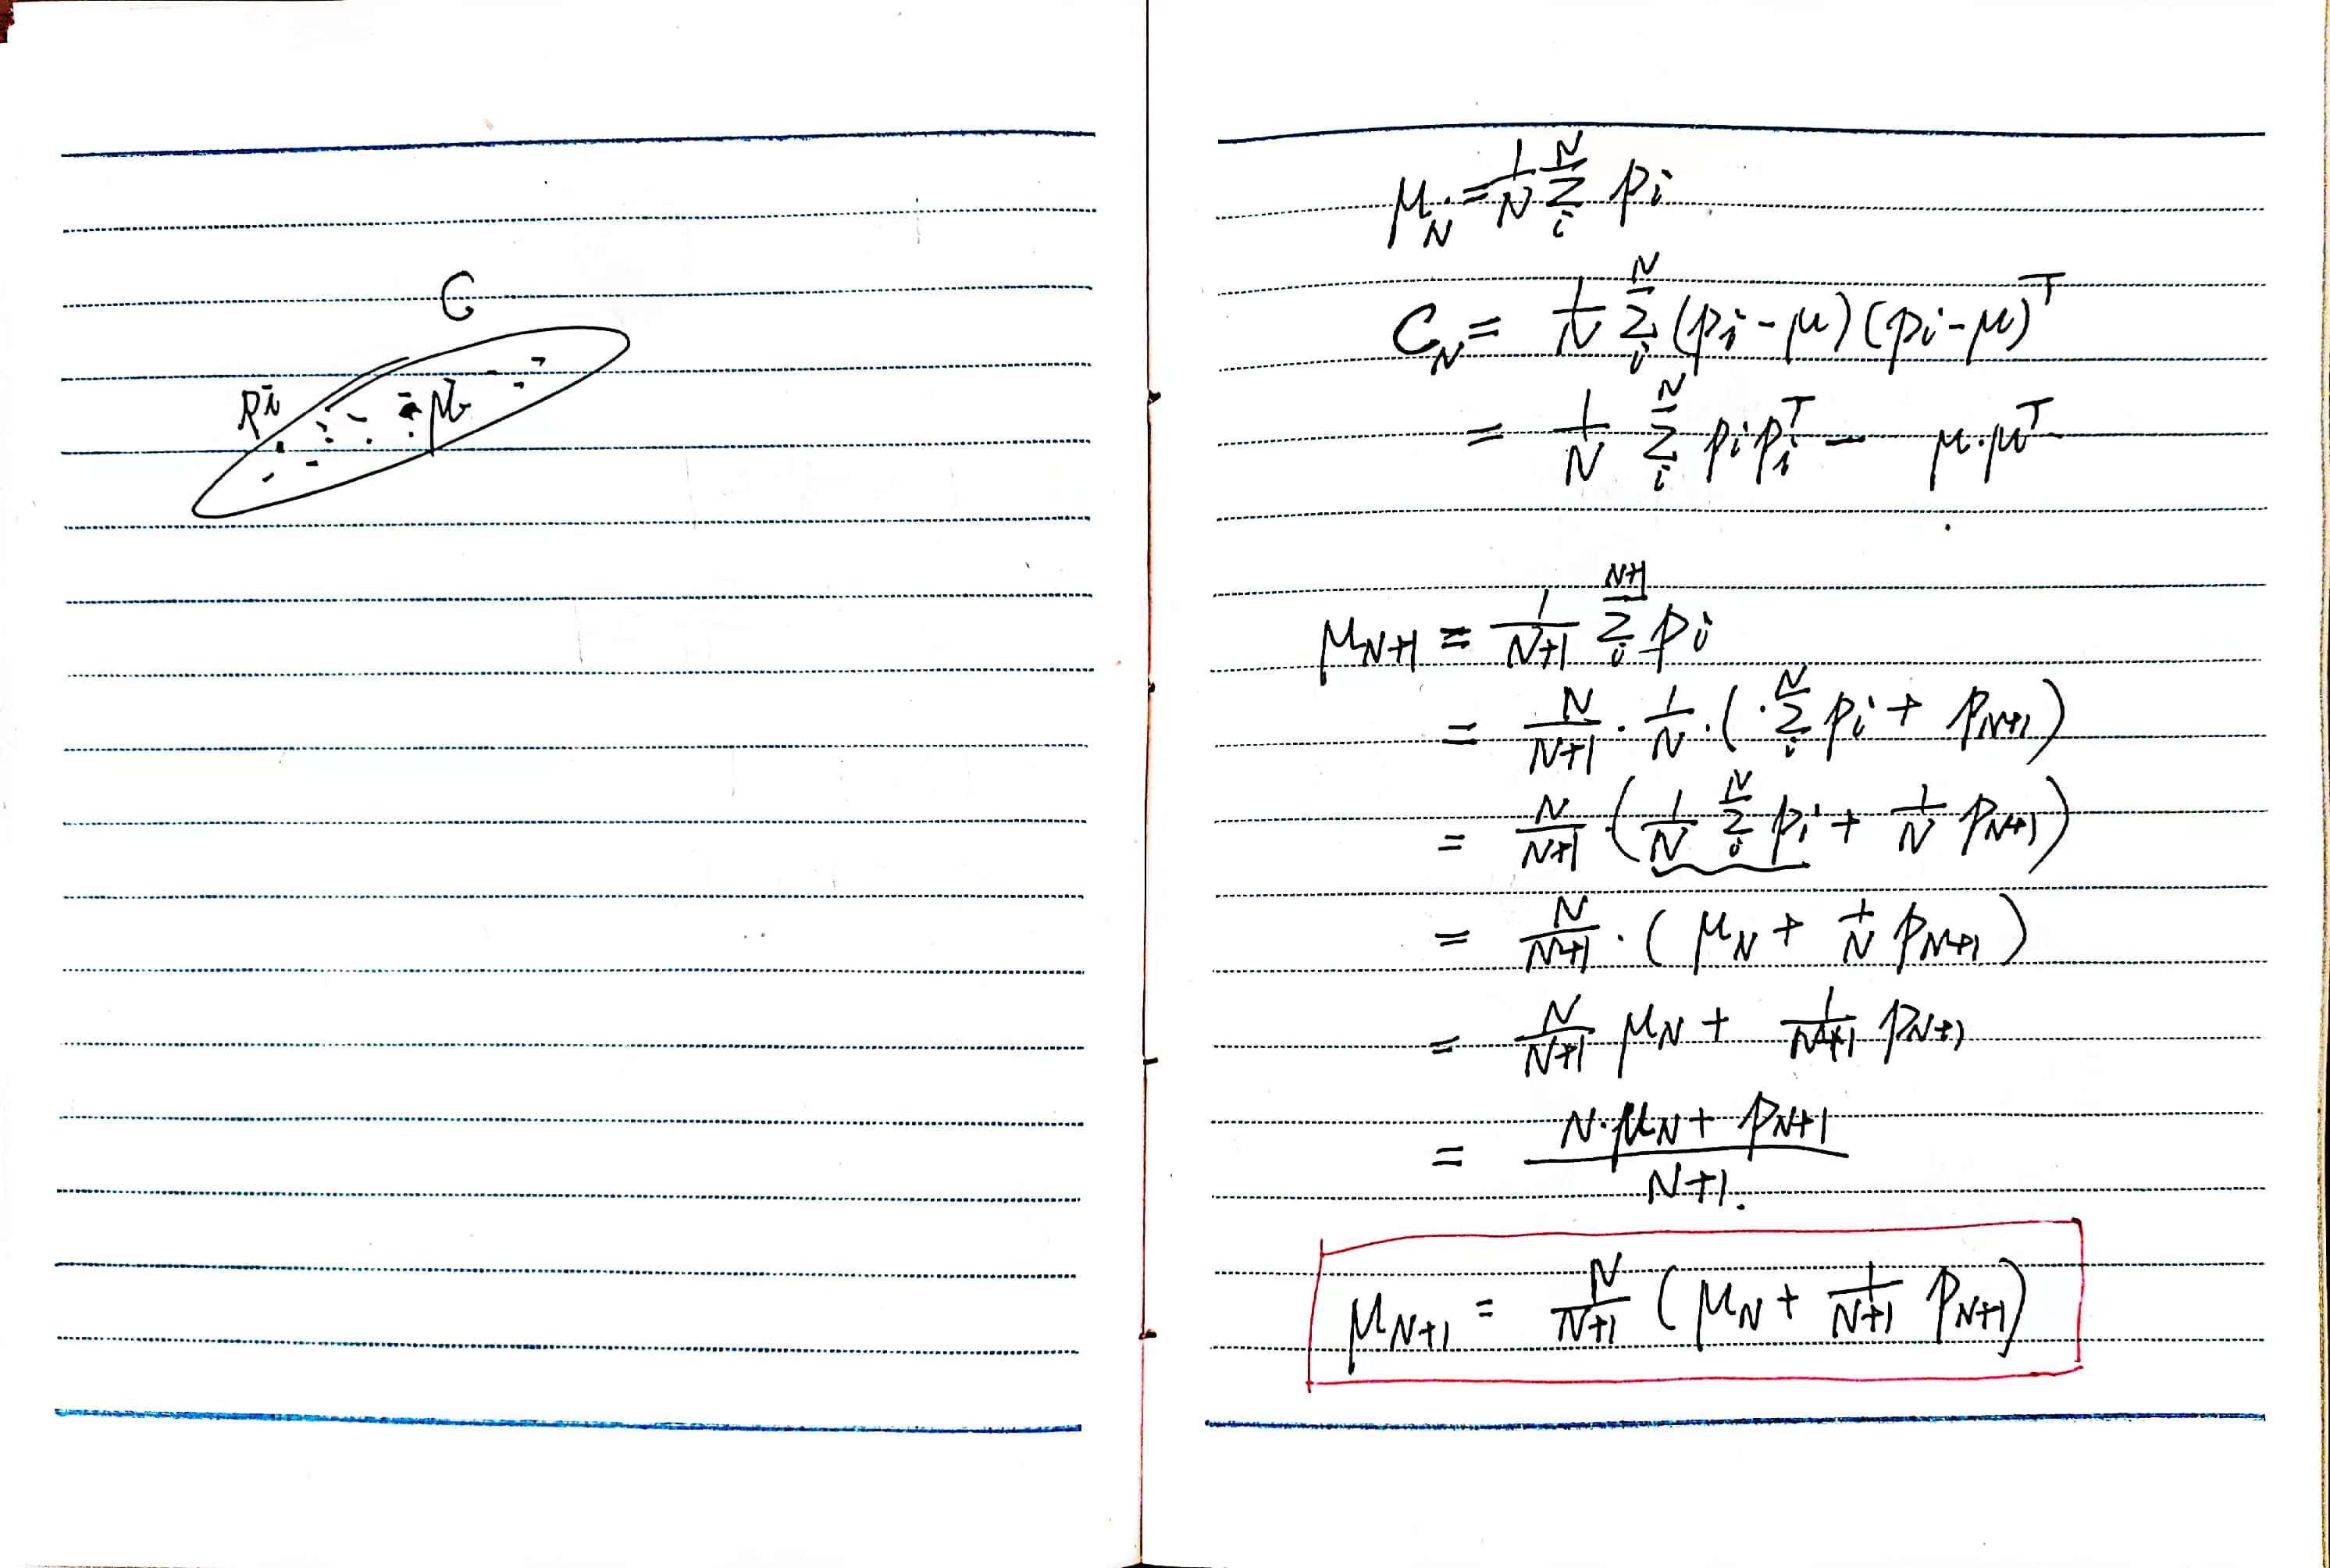 C
pi
μ
μ_N = 1/N Σ_i^N pi
C_N = 1/N Σ_i^N (pi - μ)(pi - μ)^T
= 1/N Σ_i^N pi pi^T - μ·μ^T
μ_N+1 = 1/(N+1) Σ_i^(N+1) pi
= N/(N+1) · 1/N · (Σ_i^N pi + p_N+1)
= N/(N+1) · (1/N Σ_i^N pi + 1/N p_N+1)
= N/(N+1) · (μ_N + 1/N p_N+1)
= N/(N+1) μ_N + 1/(N+1) p_N+1
= (N·μ_N + p_N+1)/(N+1).
μ_N+1 = N/(N+1) (μ_N + 1/(N+1) p_N+1)